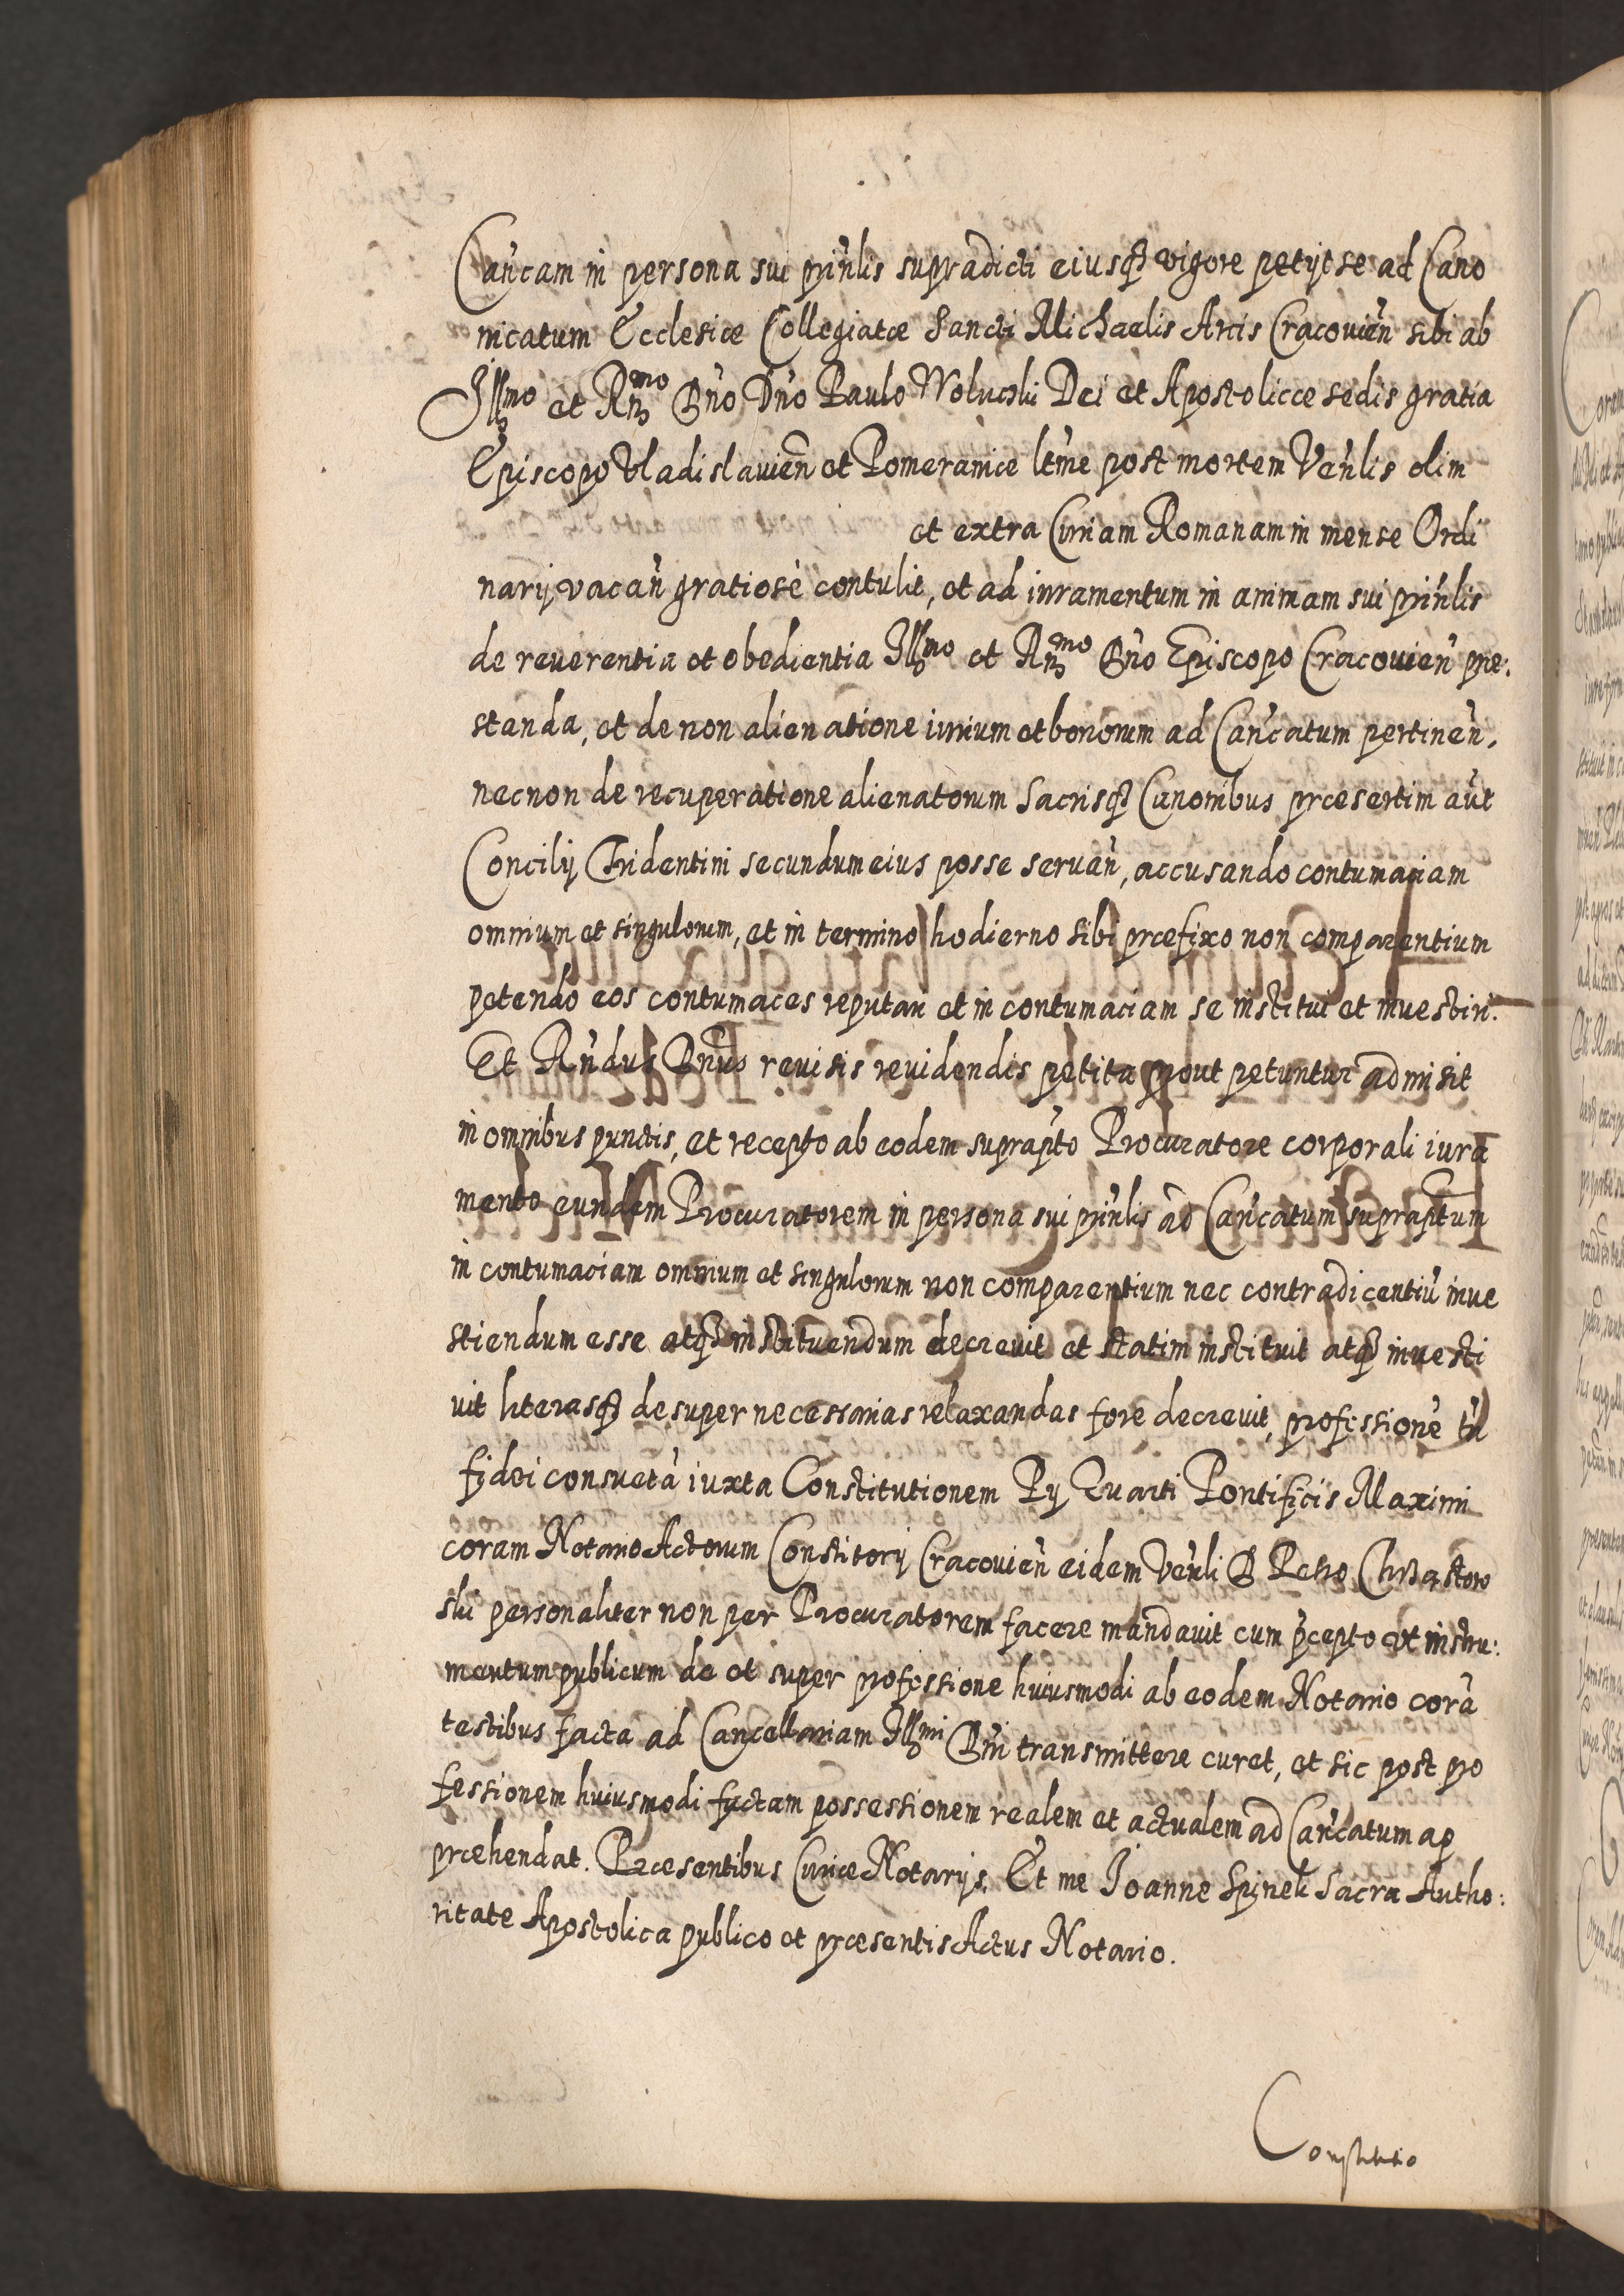 Cańcam in persona sui prińlis supradicti eiusq₃ vigore petijt se ad Cano
nicatum Ecclesiæ Collegiatæ Sancti Michaelis Arcis Cracouień sibi ab
Illmo et Rnmo Dńo Dńo Paulo Wolucski Dei et Apostolicæ sedis gratia
Episcopo Vladislauień et Pomeraniæ ltme post mortem Veńlis olim
et extra Curiam Romanam in mense Ordi
narij vacań gratiosè contulit, et ad iuramentum in animam sui prińlis
de reuerentia et obedientia Illmo et Rnmo Dńo Episcopo Cracouień pre:
standa, et de non alienatione iurium et bonorum ad Cańcatum pertineń,
necnon de recuperatione alienatorum Sacrisq₃ Canonibus præsertim aut
Concilij Tridentini secundum eius posse seruań, accusando contumaciam
omnium et singulorum, et in termino hodierno sibi præfixo non comparentium
petendo eos contumaces reputari et in contumaciam se institui et inuestiri.
Et Rńdus Dńus reuisis reuidendis petita prout petuntur admisit
in omnibus punctis, et recepto ab eodem suprapto Procuratore corporali iura
mento eundem Procuratorem in persona sui prińlis ad Cańcatum supraptum
in contumaciam omnium et singulorum non comparentium nec contradicentiū inue
stiendum esse atq₃ instituendum decreuit et statim instituit atq₃ inuesti
uit literasq₃ desuper necessarias relaxandas fore decreuit, professionē tń
fidei consuetā iuxta Constitutionem Pij Quarti Pontificis Maximi
coram Notario Actorum Consistorij Cracouień eidem Veńli D Petro Chrząstow
ski personaliter non per Procuratorem facere mandauit cum p̄cepto vt instru:
mentum publicum de et super professione huiusmodi ab eodem Notario corā
testibus facta ad Cancellariam Illmi Dńi transmittere curet, et sic post pro
fessionem huiusmodi factam possessionem realem et actualem ad Cańcatum ap
præhendat. Præsentibus Curiæ Notarijs. Et me Joanne Spinek Sacra Autho:
ritate Apostolica publico et præsentis Actus Notario.
Constitutio